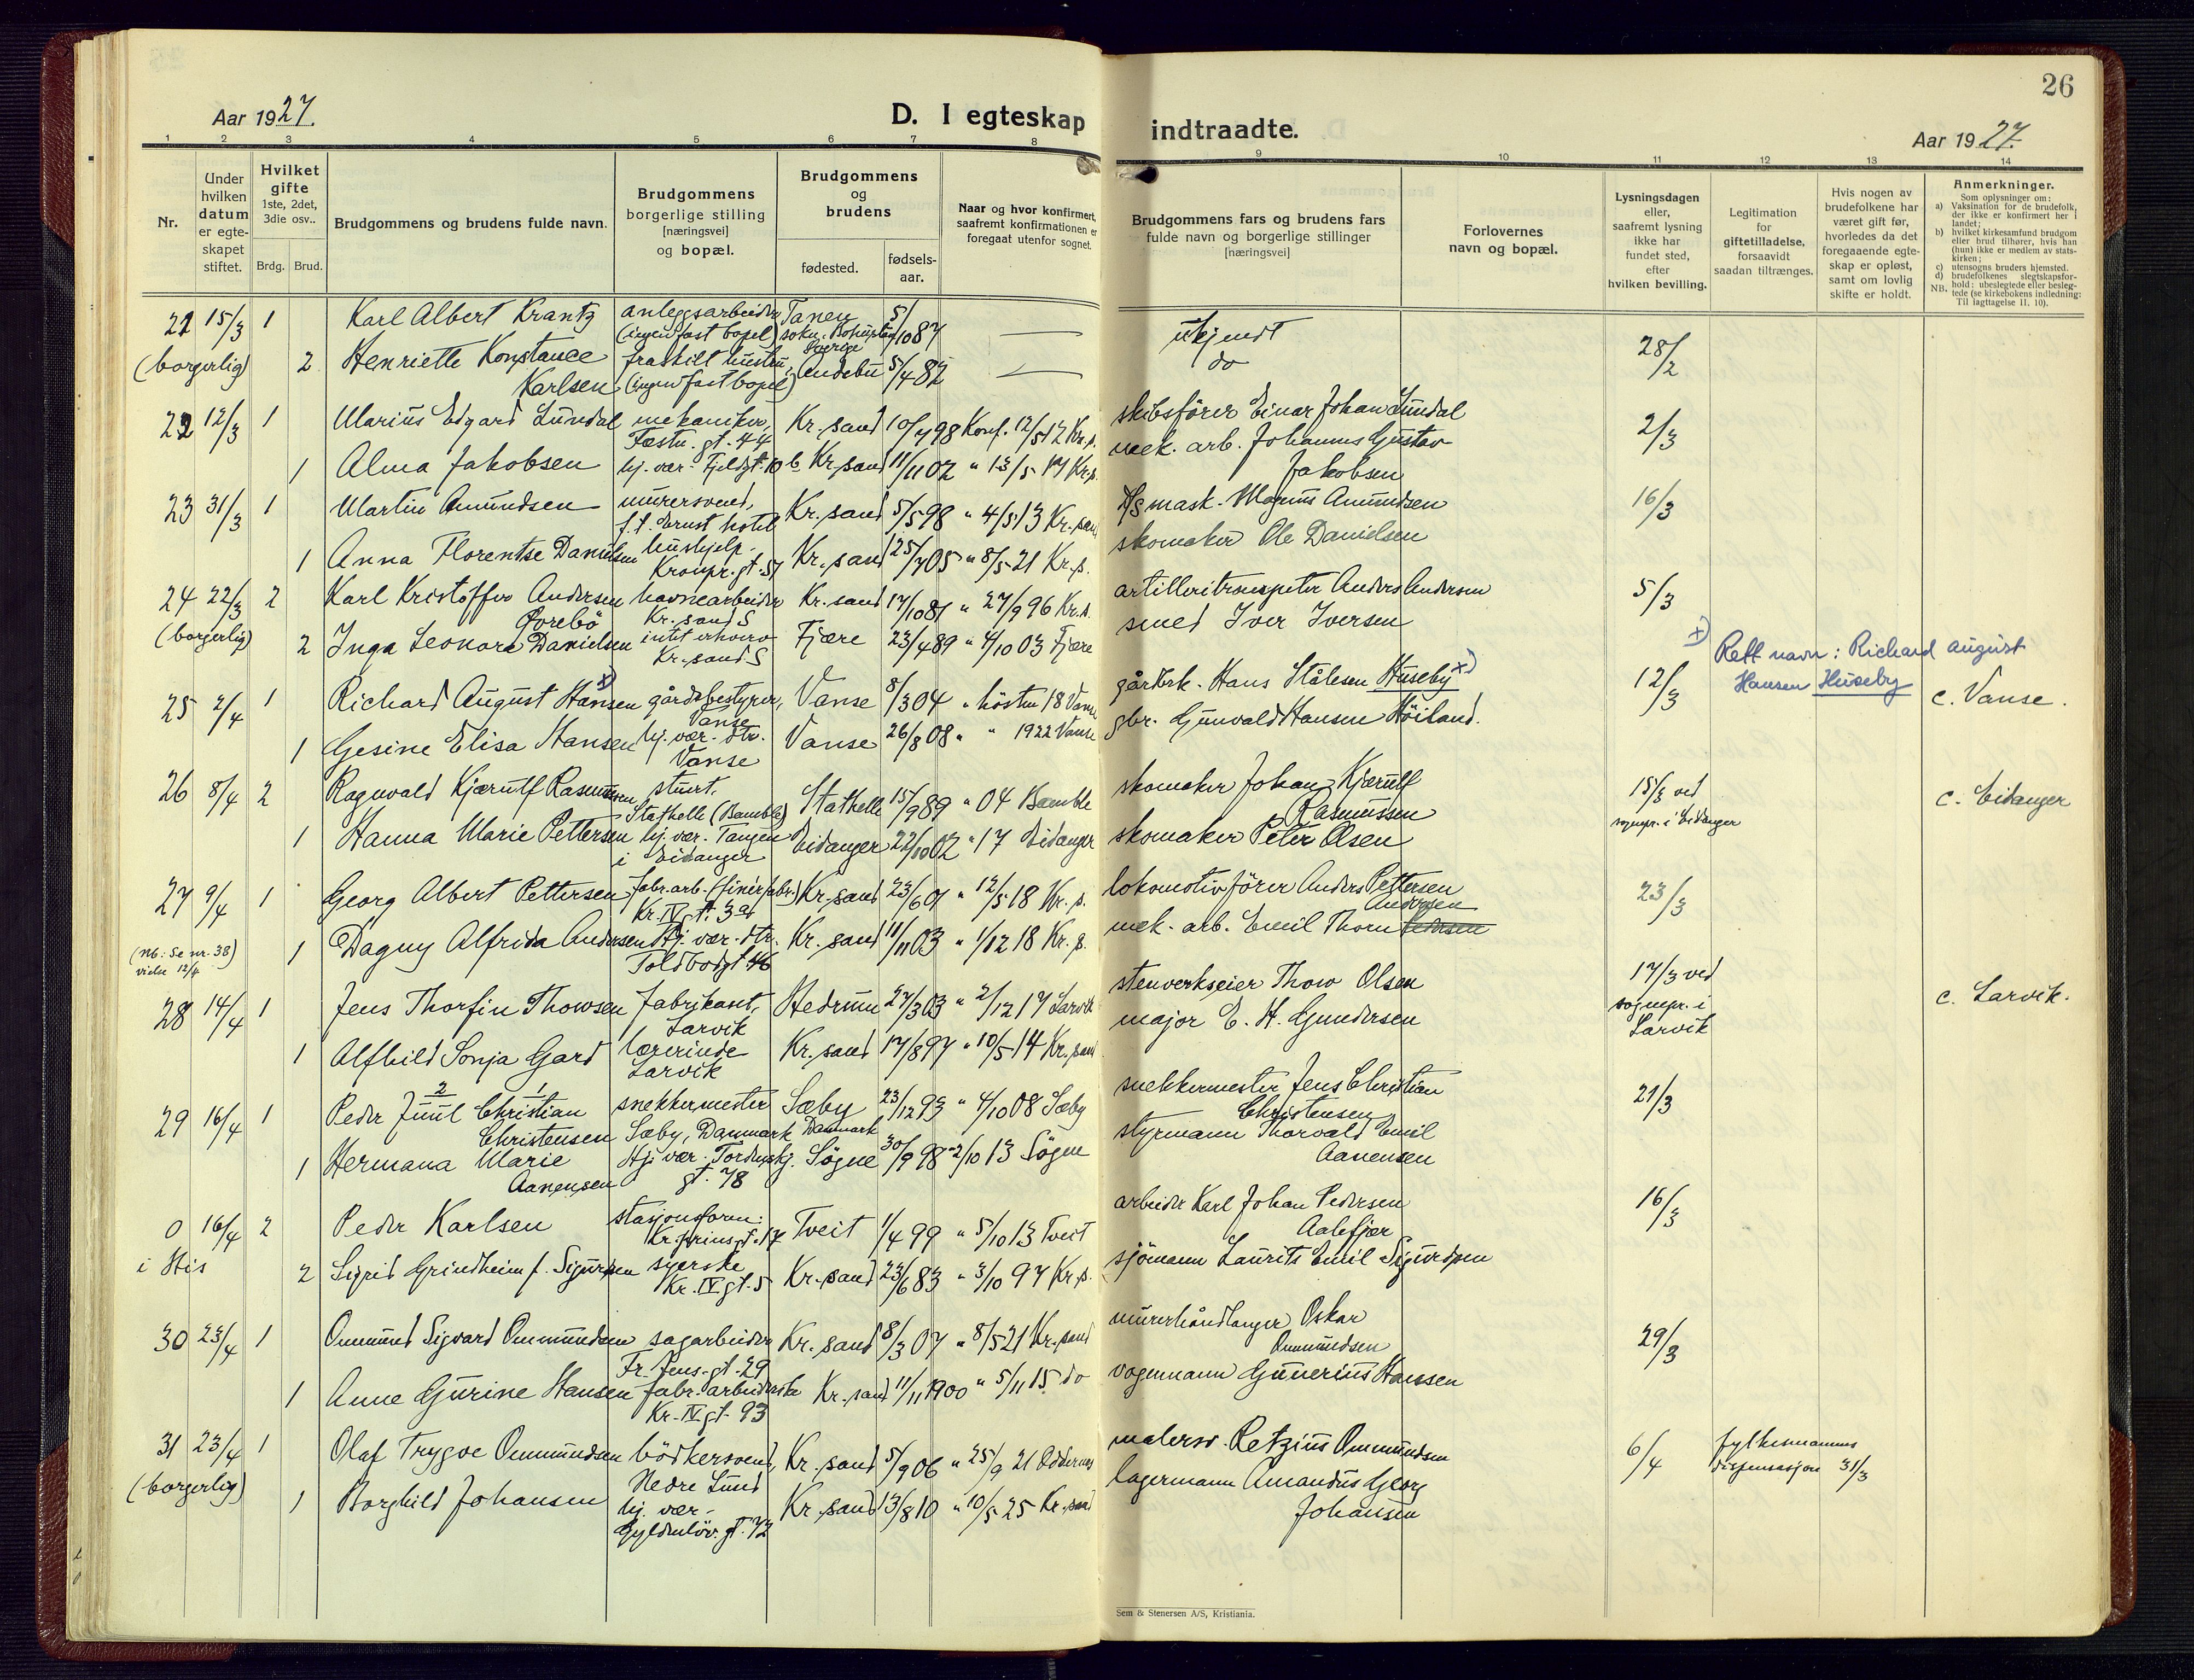 26
Aar 1927.
D. I egteskap indtraadte.
Aar 1927.
1 2 3 4 5 6 7 8 9 10 11 12 13 14
Nr.
Under hvilken datum er egteskapet stiftet.
Hvilket gifte 1ste, 2det, 3die osv..
Brdg. Brud.
Brudgommens og brudens fulde navn.
Brudgommens borgerlige stilling [næringsvei] og bopæl.
Brudgommens og brudens
fødested.
fødselsaar.
Naar og hvor konfirmert, saafremt konfirmationen er foregaat utenfor sognet.
Brudgommens fars og brudens fars fulde navn og borgerlige stillinger [næringsvei]
Forlovernes navn og bopæl.
Lysningsdagen eller, saafremt lysning ikke har fundet sted, efter hvilken bevilling.
Legitimation for giftetilladelse, forsaavidt saadan tiltrænges.
Hvis nogen av brudefolkene har været gift før, hvorledes da det foregaaende egteskap er opløst, samt om lovlig skifte er holdt.
Anmerkninger.
Som oplysninger om:
a) Vaksination for de brudefolk, der ikke er konfirmert her i landet;
b) hvilket kirkesamfund brudgom eller brud tilhører, hvis han (hun) ikke er medlem av statskirken;
c) utensogns bruders hjemsted.
d) brudefolkenes slegtskapsforhold: ubeslegtede eller beslegtede (se kirkebokens indledning: Til iagttagelse II. 10).
NB.
21 15/3 1 Karl Albert Krantz anleggsarbeider Tanen 5/10 87 — ukjendt 28/2
(ingen fast bopel) sokn. Bohuslen Sverige
(borgerlig) 2 Henriette Konstance fraskilt hustru, Andebu 5/4 82 — do
Karlsen (ingen fast bopel)
22 12/3 1 Marius Edgard Lundal mekaniker, Kr.sand 10/7 98 Konf. 12/5 12 Kr.s. skibsfører Einar Johan Lundal 2/3
Festn. gt. 44
1 Alma Jakobsen hj. vær. Fjeldgt. 10 b Kr.sand 11/11 02 " 13/5 17 Kr.s. mek. arb. Johannes Gustav
Jakobsen
23 31/3 1 Martin Amundsen murersvend, Kr.sand 5/5 98 " 4/5 13 Kr.sand mask. Magnus Amundsen 16/3
f.t. Ernst hotel
1 Anna Florentse Danielsen hushjelp. Kr.sand 25/7 05 " 8/5 21 Kr.s. skomaker Ole Danielsen
Kronpr. gt. 57
24 22/3 2 Karl Kristoffer Andersen havnearbeider Kr.sand 17/10 81 " 27/9 96 Kr.s. artilleritrompeter Anders Andersen 5/3
Øvrebö Kr.sand S
(borgerlig) 2 Inga Leonora Danielsen intet erhverv Fjære 23/4 89 " 4/10 03 Fjære smed Iver Iversen
Kr.sand. S
x) Rett navn: Richard august
Hansen Huseby
25 2/4 1 Richard August Hansen x) gårdsbestyrer, Vanse 8/3 04 " hösten 18 Vanse gårdbrk. Hans Stålesen Huseby x) 12/3 c. Vanse.
Vanse
1 Gesine Elisa Hansen hj. vær. dtr. Vanse 26/8 08 " " 1922 Vanse gbr. Gunvald Hansen Höiland.
Vanse
26 8/4 2 Ragnvald Kjærulf Rasmussen stuert, Stathelle 15/9 89 " 04 Bamble skomaker Johan Kjærulf 15/3 ved c. Eidanger
Stathelle (Bamble) Rasmussen sognepr. i Eidanger
1 Hanna Marie Pettersen hj. vær. Tangen Eidanger 22/10 02 " 17 Eidanger skomaker Peter Olsen
i Eidanger
27 9/4 1 Georg Albert Pettersen fabr.arb. (finérfabr.) Kr.sand 23/6 01 " 12/5 18 Kr.s. lokomotivfører Anders Pettersen 23/3
Kr. IV gt. 3a
(Nb: Se nr. 38) 1 Dagny Alfrida Andersen Hj. vær. dtr. Kr.sand 11/11 03 " 1/12 18 Kr.s. mek. arb. Emil Thorn Andersen
vielse 12/4 Toldbodgt 46
28 14/4 1 Jens Thorfin Thowsen fabrikant, Hedrum 27/3 03 " 2/12 17 Larvik stenverkseier Thow Olsen 17/3 ved c. Larvik.
Larvik sognepr. i
1 Alfhild Sonja Gard lærerinde Kr.sand 17/8 97 " 10/5 14 Kr.sand major E. H. Gundersen Larvik
Larvik
2 1
29 16/4 1 Peder Juul Christian snekkermester Sæby 23/12 93 " 4/10 08 Sæby snekkermester Jens Christian 21/3
Christensen Sæby, Danmark Danmark Christensen
1 Hermana Marie Hj. vær. Tordenskj. Sögne 30/9 98 " 2/10 13 Sögne styrmann Thorvald Emil
Aanensen gt. 78 Aanensen
0 16/4 2 Peder Karlsen stasjonsform: Tveit 1/4 99 " 5/10 13 Tveit arbeider Karl Johan Pedersen 16/3
Kr.prinsgt. 17 Aalefjær
i His 2 Sigrid Grindheim f. Sigurdsen syerske Kr.sand 23/6 83 " 3/10 97 Kr.s. sjömann Laurits Emil Sigurdsen
Kr. IV gt. 5
30 23/4 1 Ommund Sigvard Ommundsen sagarbeider Kr.sand 8/3 07 " 8/5 21 Kr.sand murerhåndlanger Oskar 29/3
Fr. Fens. gt. 29 Ommundsen
1 Anne Gurine Hansen fabr.arbeiderske Kr.sand 11/11 1900 " 5/11 15 do vognmann Gunerius Hansen
Kr. IV gt. 93
31 23/4 1 Olaf Trygve Ommundsen bödkersvend, Kr.sand 5/9 06 " 25/9 21 Oddernes malersv. Retzius Ommundsen 6/4 fylkesmannens
Nedre Lund dispensasjon 31/3
(borgerlig) 1 Borghild Johansen hj. vær. Kr.sand 13/8 10 " 10/5 25 Kr.sand lagermann Amandus Georg
Gyldenlöv. gt. 72 Johansen
Sem & Stenersen A/S, Kristiania.